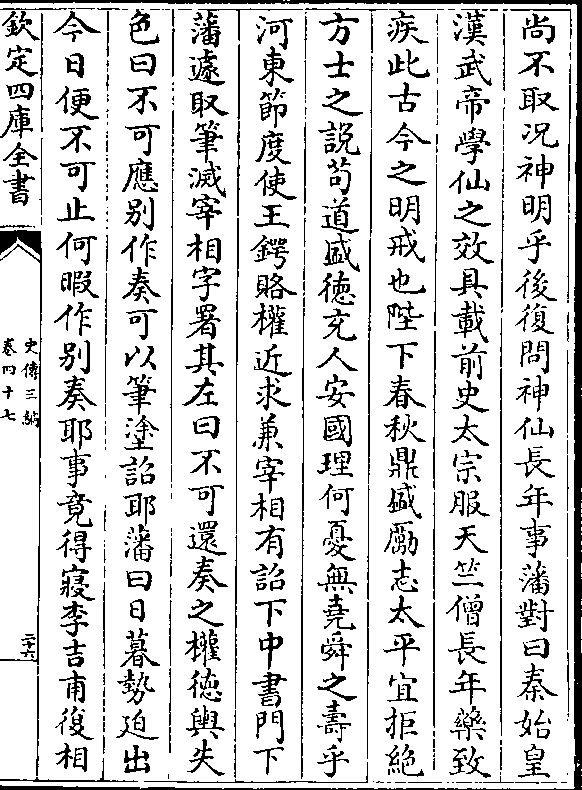 尚不取况神明乎後復問神仙長年事藩對曰秦始皇
漢武帝學仙之效具載前史太宗服天竺僧長年藥致
疾此古今之明戒也陛下春秋鼎盛勵志太平宜拒絶
方士之説苟道盛徳充人安國理何憂無堯舜之壽乎
河東節度使王鍔賂權近求兼宰相有詔下中書門下
藩遽取筆滅宰相字署其左曰不可還奏之權徳輿失
色曰不可應别作奏可以筆塗詔耶藩曰日暮勢迫出
今日便不可止何暇作别奏耶事竟得寢李吉甫復相
欽定四庫全書
史傳三編
卷四十七
二十六